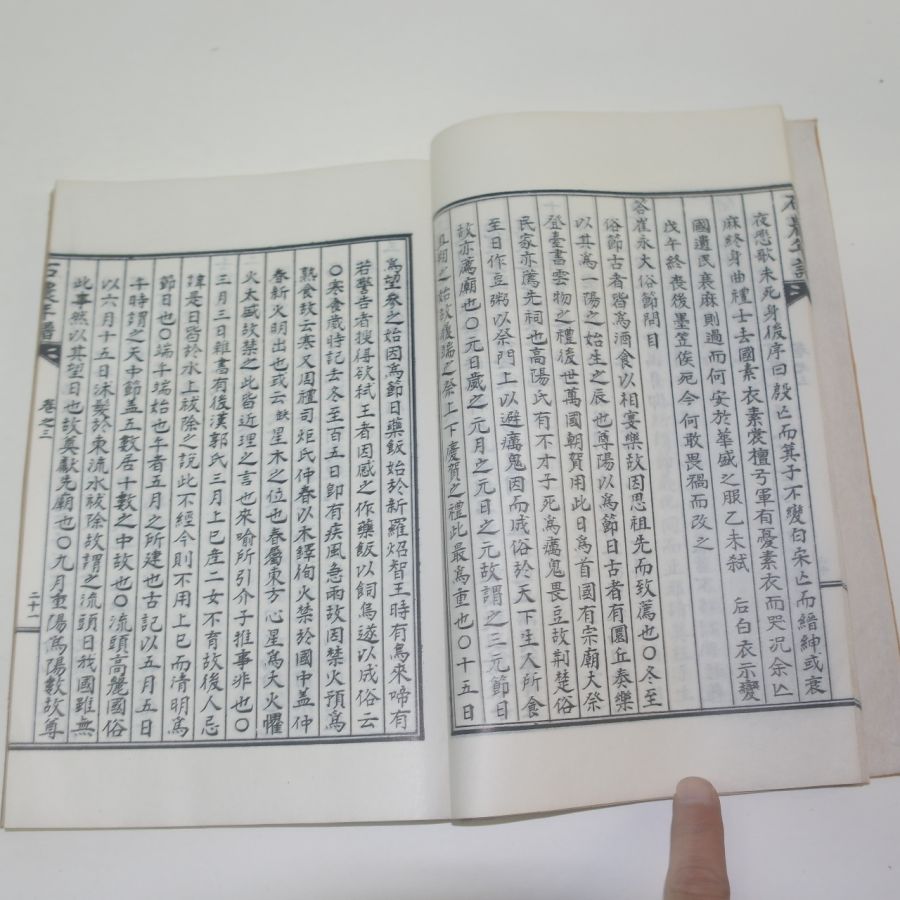 夜悲歌未死身後序曰殷亡而箕子不變白宋亡而縉紳或衰
麻終身曲禮士去國素衣素裳檀弓軍有憂素衣而哭况余亡
國遺民衰麻則過而何安於華盛之服乙未弑 后白衣示變
戊午終喪後墨笠俟死今何敢畏禍而改之
答崔永大俗節問目
俗節古者皆爲酒食以相宴樂故因思祖先而致薦也〇冬至
以其爲一陽之始生之辰也尊陽以爲節日古者有圜丘奏樂
登臺書雲物之禮後世萬國朝賀用此日爲首國有宗廟大祭
民家亦薦先祠也高陽氏有不才子死爲癘鬼畏豆故荆楚俗
至日作豆粥以祭門上以避癘鬼因而成俗於天下生人所食
故亦薦廟也〇元日歲之元月之元日之元故謂之三元節日
且朔之始故復端之祭上下慶賀之禮此最爲重也〇十五日
爲望參之始因爲節日藥飯始於新羅炤智王時有烏來啼有
若警告者搜得欲弑王者因感之作藥飯以飼烏遂以成俗云
〇寒食歲時記去冬至百五日卽有疾風急雨故因禁火預爲
熟食故云寒又周禮司烜氏仲春以木鐸徇火禁於國中盖仲
春新火明出也或云 星木之位也春屬東方 心星爲大火懼
火太盛故禁之此皆近理之言也來喻所引介子推事非也〇
三月三日雜書有後漢郭氏三月上巳產二女不育故後人忌
諱是日皆於水上祓除之說此不經今則不用上巳而清明爲
節日也〇端午端始也午者五月之所建也古記以五月五日
午時謂之天中節盖五數居十數之中故也〇流頭高麗國俗
以六月十五日沐髮於東流水祓除故謂之流頭日我國雖無
此事然以其望日也故奠獻先廟也〇九月重陽爲陽數故尊
石農年譜 卷之三 二十一